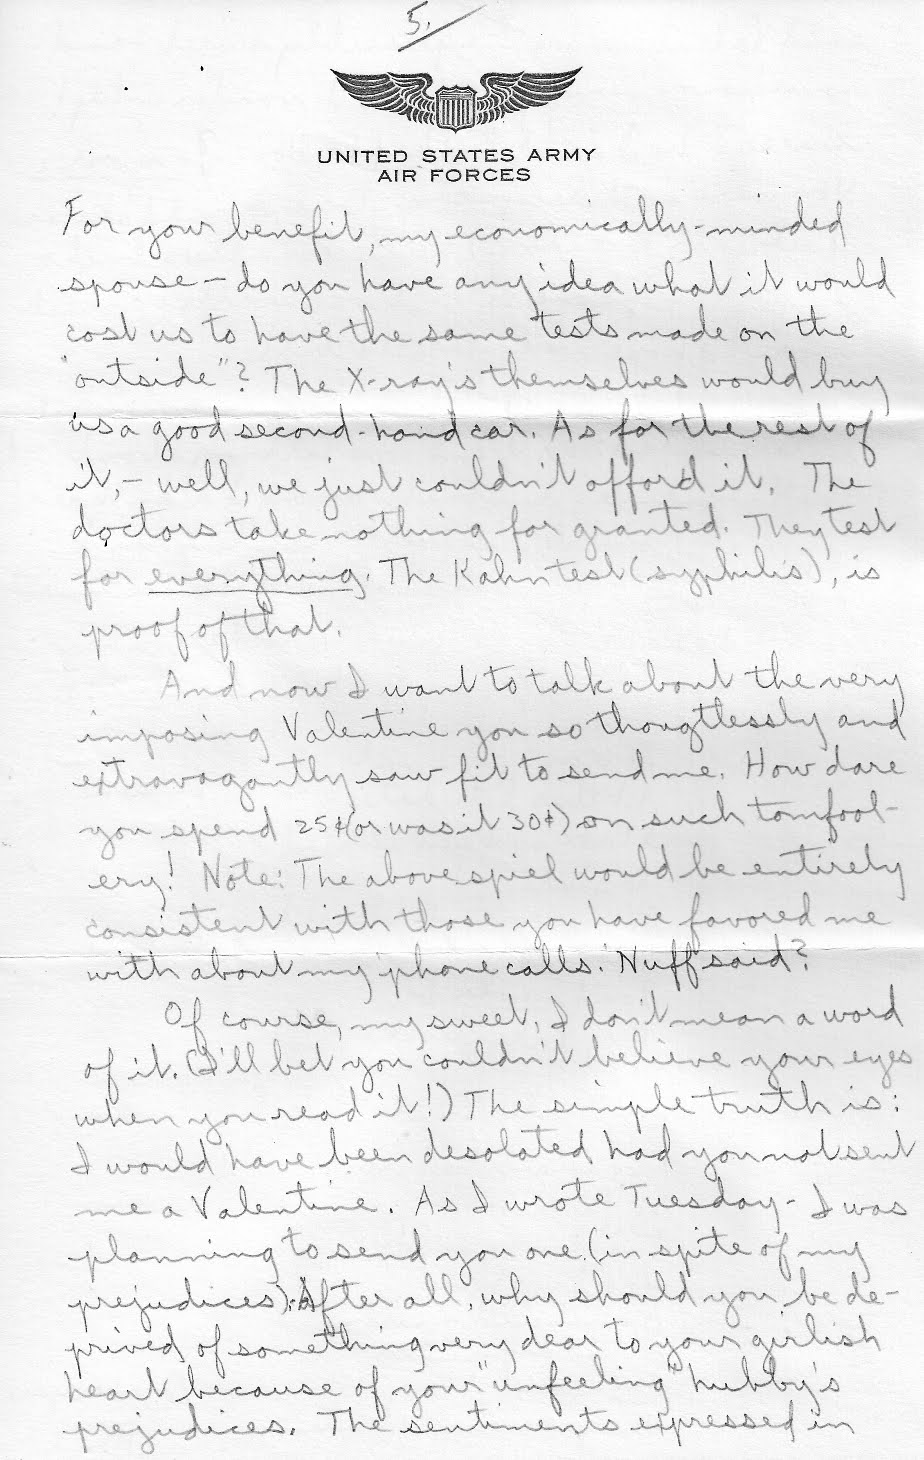 5.
UNITED STATES ARMY
AIR FORCES
For your benefit, my economically-minded
spouse – do you have any idea what it would
cost us to have the same tests made on the
"outside"? The X-ray's themselves would buy
us a good second-hand car. As for the rest of
it, – well, we just couldn't afford it. The
doctors take nothing for granted. They test
for everything. The Kahn test (syphilis), is
proof of that.
And now I want to talk about the very
imposing Valentine you so thougtlessly and
extravagantly saw fit to send me. How dare
you spend 25¢ (or was it 30¢) on such tomfool-
ery! Note: The above spiel would be entirely
consistent with those you have favored me
with about my 'phone calls. 'Nuff said?
Of course, my sweet, I don't mean a word
of it. (I'll bet you couldn't believe your eyes
when you read it!) The simple truth is:
I would have been desolated had you not sent
me a Valentine. As I wrote Tuesday - I was
planning to send you one (in spite of my
prejudices). After all, why should you be de-
prived of something very dear to your girlish
heart because of your "unfeeling" hubby's
prejudices. The sentiments expressed in